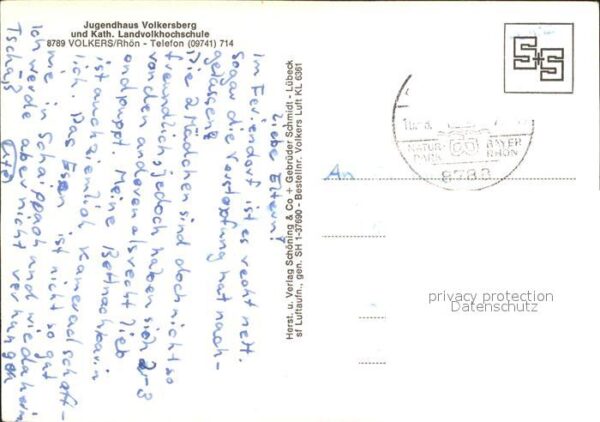 Jugendhaus Volkersberg
und Kath. Landvolkhochschule
8789 VOLKERS/Rhön - Telefon (09741) 714
Liebe Eltern!
Im Feriendorf ist es recht nett.
Sogar die Verstopfung hat nach-
gelassen.
Die 2 Mädchen sind doch nicht so
freundlich, jedoch haben sich 2-3
von den anderen als recht lieb
entpuppt. Meine Bettnachbarin
ist auch ziemlich kameradschaft-
lich. Das Essen ist nicht so gut
wie in Schaippach und wie daheim
Ich werde aber nicht verhungern
Tschüß
Herst. u. Verlag Schöning & Co + Gebrüder Schmidt - Lübeck
sf Luftaufn., gen. SH 1-37690 - Bestellnr. Volkers Luft KL 6361
An
S+S
NATUR-
PARK
BAYER
RHÖN
8788
privacy protection
Datenschutz